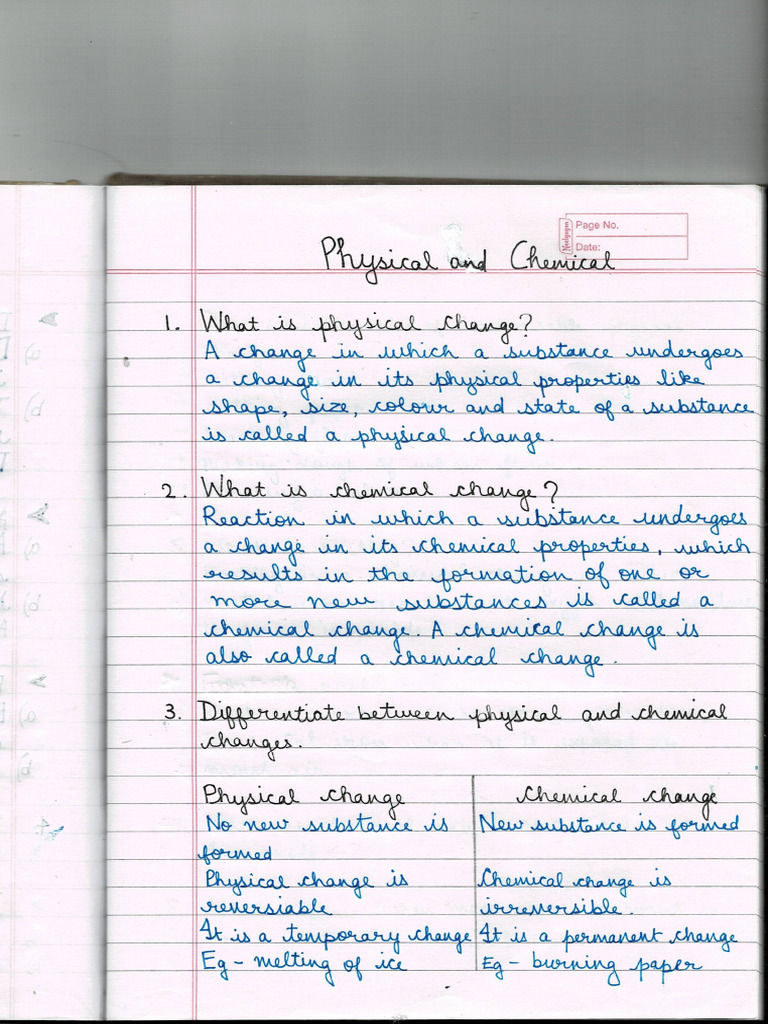 Page No.
Neelgagan
Date:
Physical and Chemical
1. What is physical change?
A change in which a substance undergoes
a change in its physical properties like
shape, size, colour and state of a substance
is called a physical change.
2. What is chemical change?
Reaction in which a substance undergoes
a change in its chemical properties, which
results in the formation of one or
more new substances is called a
chemical change. A chemical change is
also called a chemical change.
3. Differentiate between physical and chemical
changes.
Physical change
No new substance is
formed
Physical change is
reversiable
It is a temporary change
Eg - melting of ice
Chemical change
New substance is formed
Chemical change is
irreversible.
It is a permanent change
Eg - burning paper